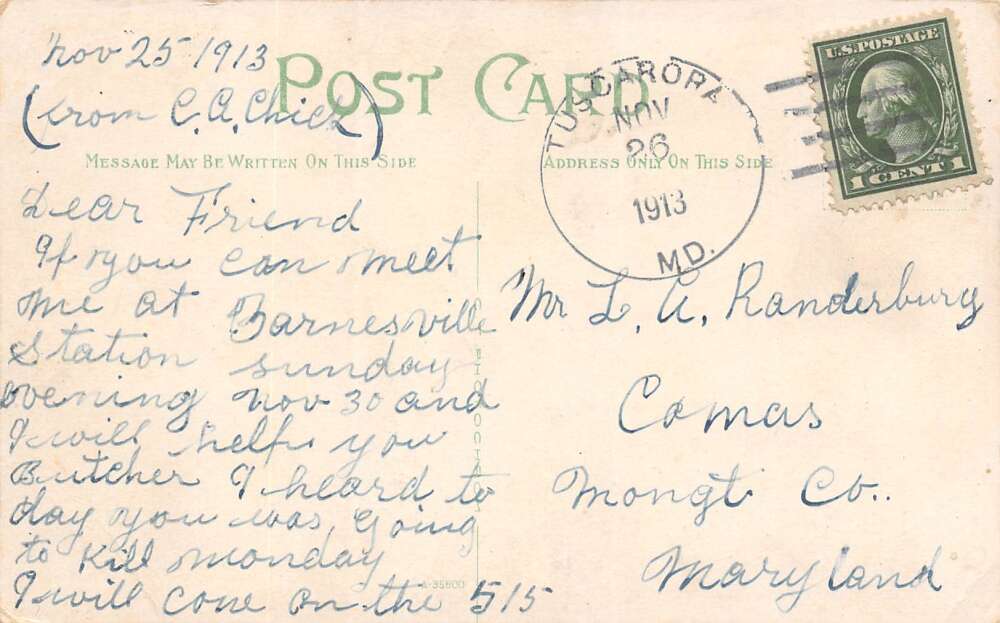 Nov 25 1913
(from C. A. Chick)
POST CARD
MESSAGE MAY BE WRITTEN ON THIS SIDE
ADDRESS ONLY ON THIS SIDE
TUSCARORA
NOV
26
1913
MD.
U.S. POSTAGE
1 CENT 1
Dear Friend
If you can meet
me at Barnesville
Station sunday
evening nov 30 and
I will help you
Butcher I heard to
day you was going
to Kill monday
I will cone on the 515
A-35600
Mr L. A. Randerburg
Comas
Mongt Co..
Maryland